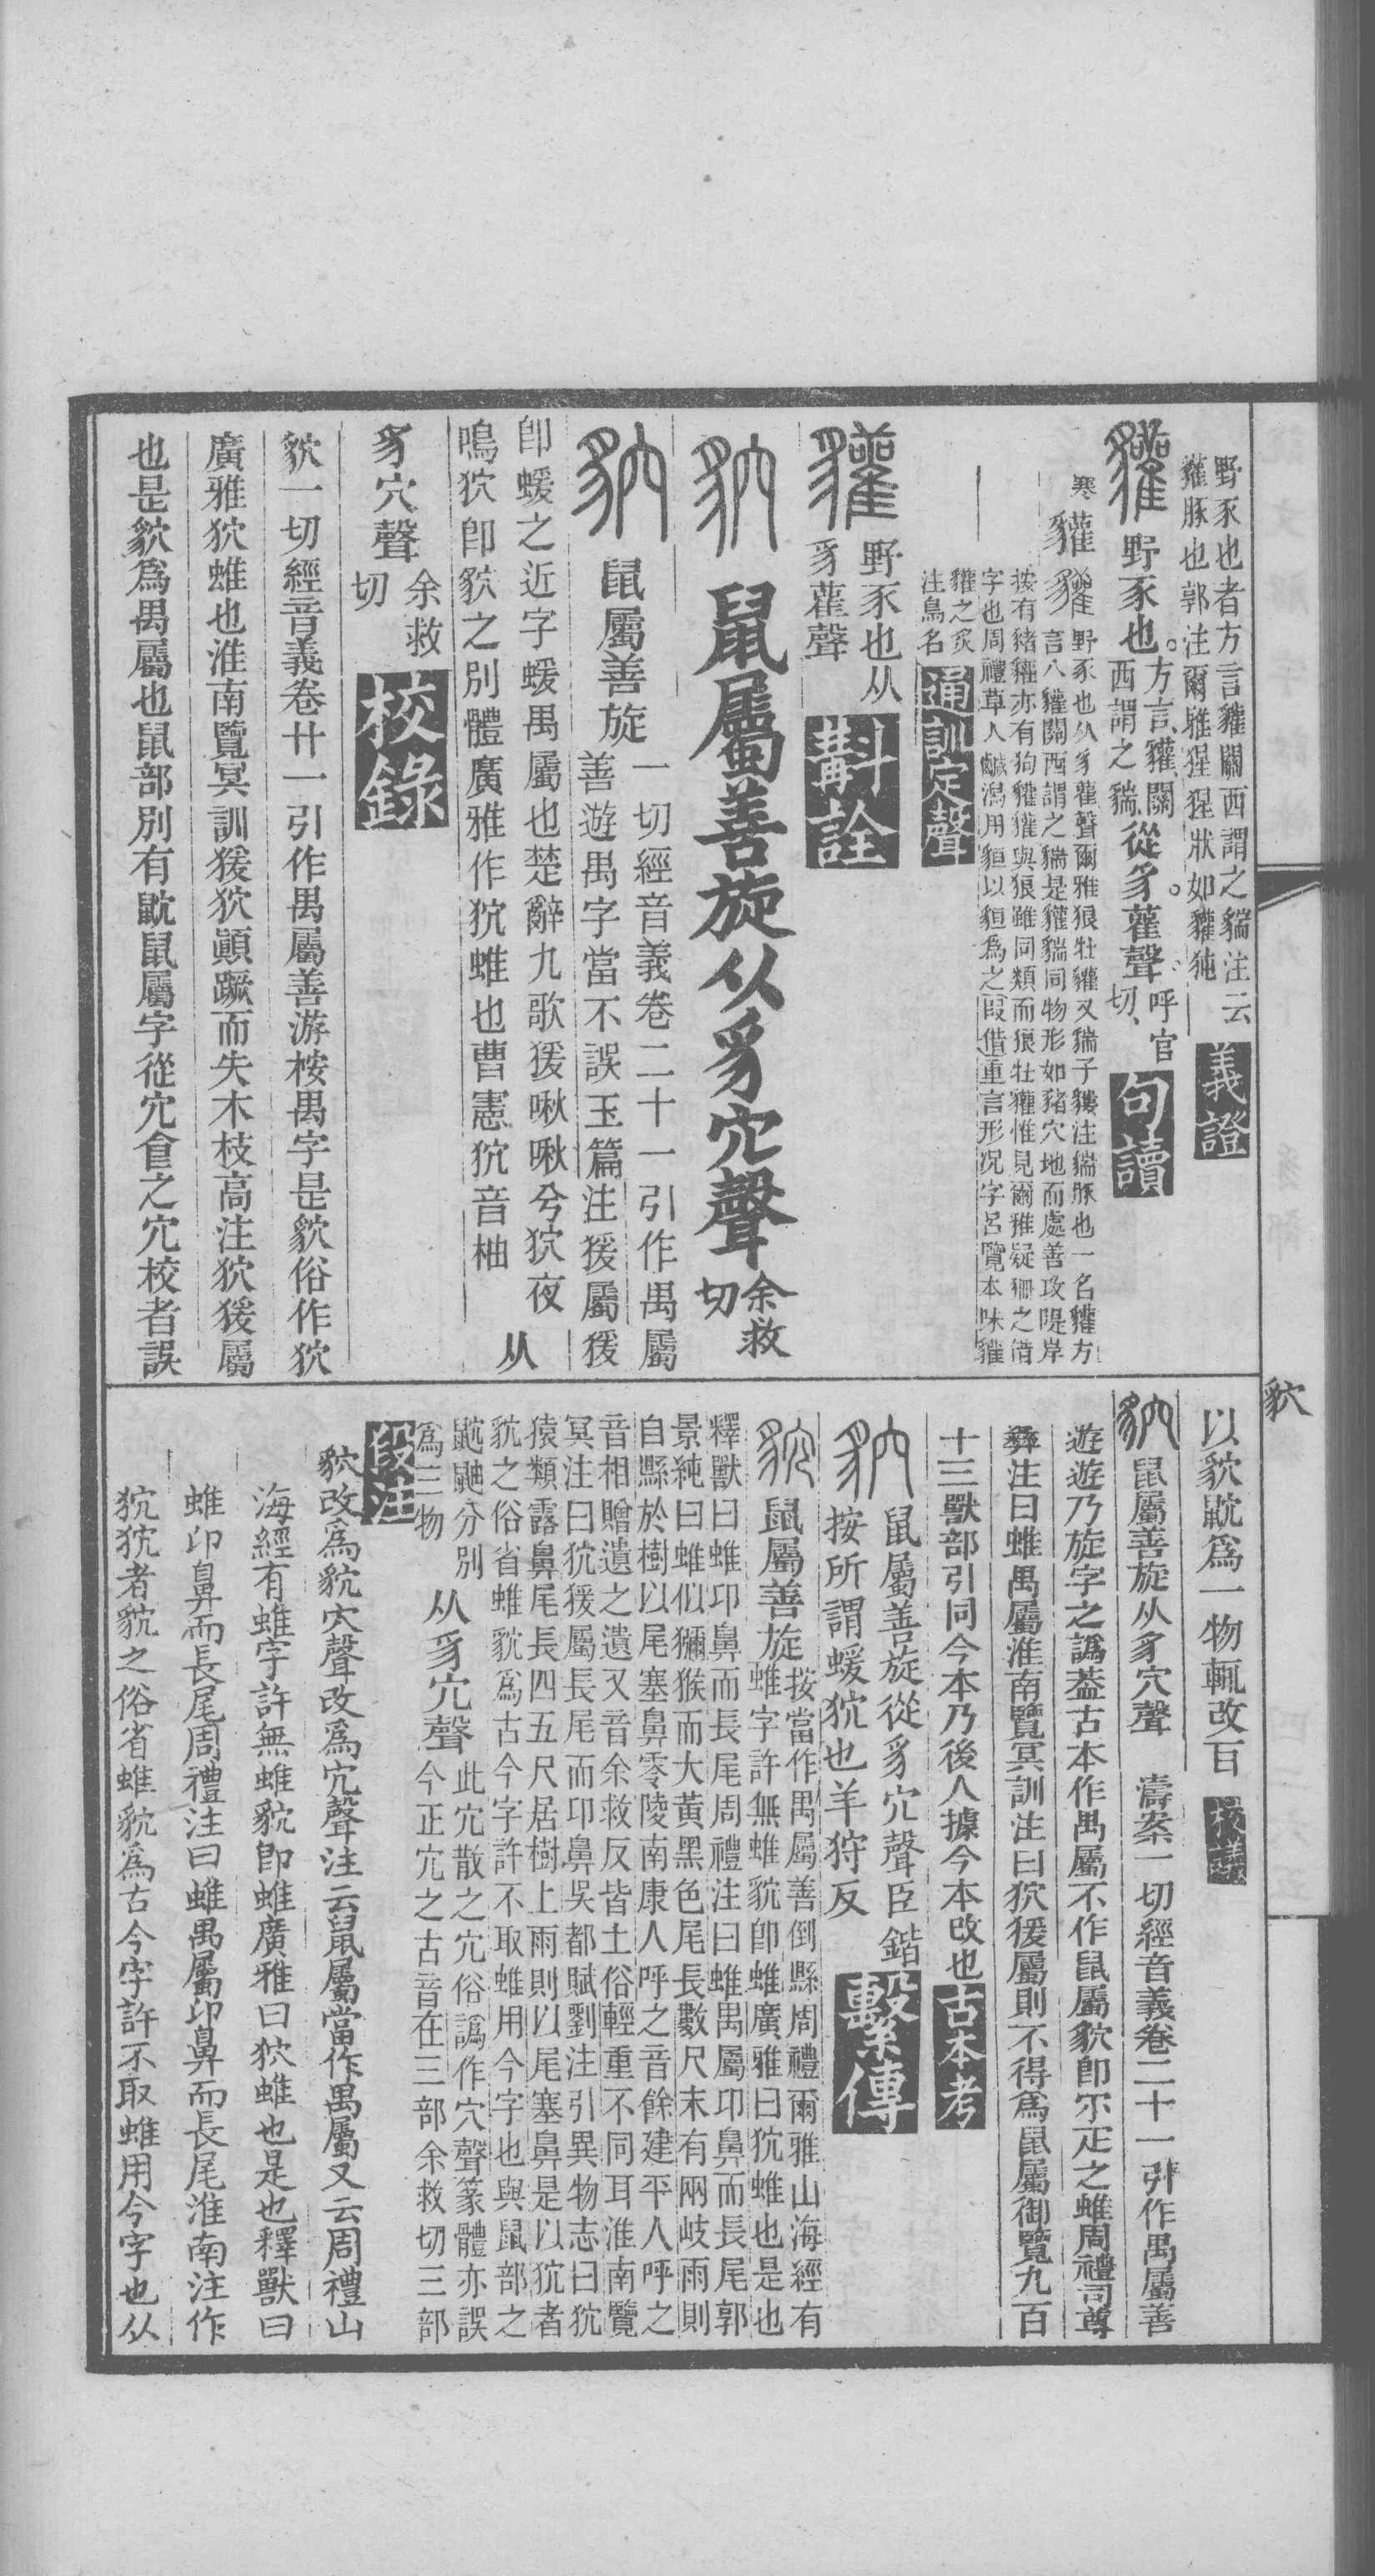 野豕也者方言貛關西謂之貒注云
貛豚也郭注爾雅猩猩狀如貛㹠
義證
貛
野豕也。
方言貛關
西謂之貒
從豸雚聲。
呼官
切、
句讀
寒
貛
野豕也从豸雚聲爾雅狼牡貛又貒子貗注貒豚也一名貛方
言八貛關西謂之貒是貛貒同物形如豬穴地而處善攻隄岸
按有豬貛亦有狗貛貛與狼雖同類而狼牡貛惟見爾雅疑狦之借
字也周禮草人鹹潟用貆以貆爲之叚借重言形况字呂覽本味貛
貛之炙
注鳥名
通訓定聲
貛
野豕也从
豸雚聲
斠詮
鼠屬善旋从豸穴聲
余救
切
鼠屬善旋
一切經音義卷二十一引作禺屬
善遊禺字當不誤玉篇注猨屬猨
卽蝯之近字蝯禺屬也楚辭九歌猨啾啾兮狖夜
鳴狖卽貁之別體廣雅作狖蜼也曹憲狖音柚
从
豸穴聲
余救
切
校錄
貁一切經音義卷廿一引作禺屬善游桉禺字是貁俗作狖
廣雅狖蜼也淮南覽冥訓猨狖顚蹶而失木枝高注狖猨屬
也是貁爲禺屬也鼠部別有鼿鼠屬字從宂會之宂校者誤
貁
以貁鼿爲一物輒改百
校議
鼠屬善旋从豸穴聲
濤案一切經音義卷二十一引作禺屬善
遊遊乃旋字之譌葢古本作禺屬不作鼠屬貁卽尒疋之蜼周禮司尊
彝注曰蜼禺屬淮南覽冥訓注曰狖猨屬則不得爲鼠屬御覽九百
十三獸部引同今本乃後人據今本改也
古本考
鼠屬善旋從豸穴聲臣鍇
按所謂蝯狖也羊狩反
繫傳
鼠屬善旋
按當作禺屬善倒縣周禮爾雅山海經有
蜼字許無蜼貁卽蜼廣雅曰狖蜼也是也
釋獸曰蜼卬鼻而長尾周禮注曰蜼禺屬卬鼻而長尾郭
景純曰蜼似獼猴而大黃黑色尾長數尺末有兩岐雨則
自縣於樹以尾塞鼻零陵南康人呼之音餘建平人呼之
音相贈遺之遺又音余救反皆土俗輕重不同耳淮南覽
冥注曰狖猨屬長尾而卬鼻吳都賦劉注引異物志曰狖
猿類露鼻尾長四五尺居樹上雨則以尾塞鼻是以狖者
貁之俗省蜼貁爲古今字許不取蜼用今字也與鼠部之
鼿鼬分別
爲三物
从豸宂聲
此宂散之宂俗譌作穴聲篆體亦誤
今正宂之古音在三部余救切三部
段注
貁改爲貁穴聲改爲宂聲注云鼠屬當作禺屬又云周禮山
海經有蜼字許無蜼貁卽蜼廣雅曰狖蜼也是也釋獸曰
蜼卬鼻而長尾周禮注曰蜼禺屬卬鼻而長尾淮南注作
狖狖者貁之俗省蜼貁爲古今字許不取蜼用今字也从